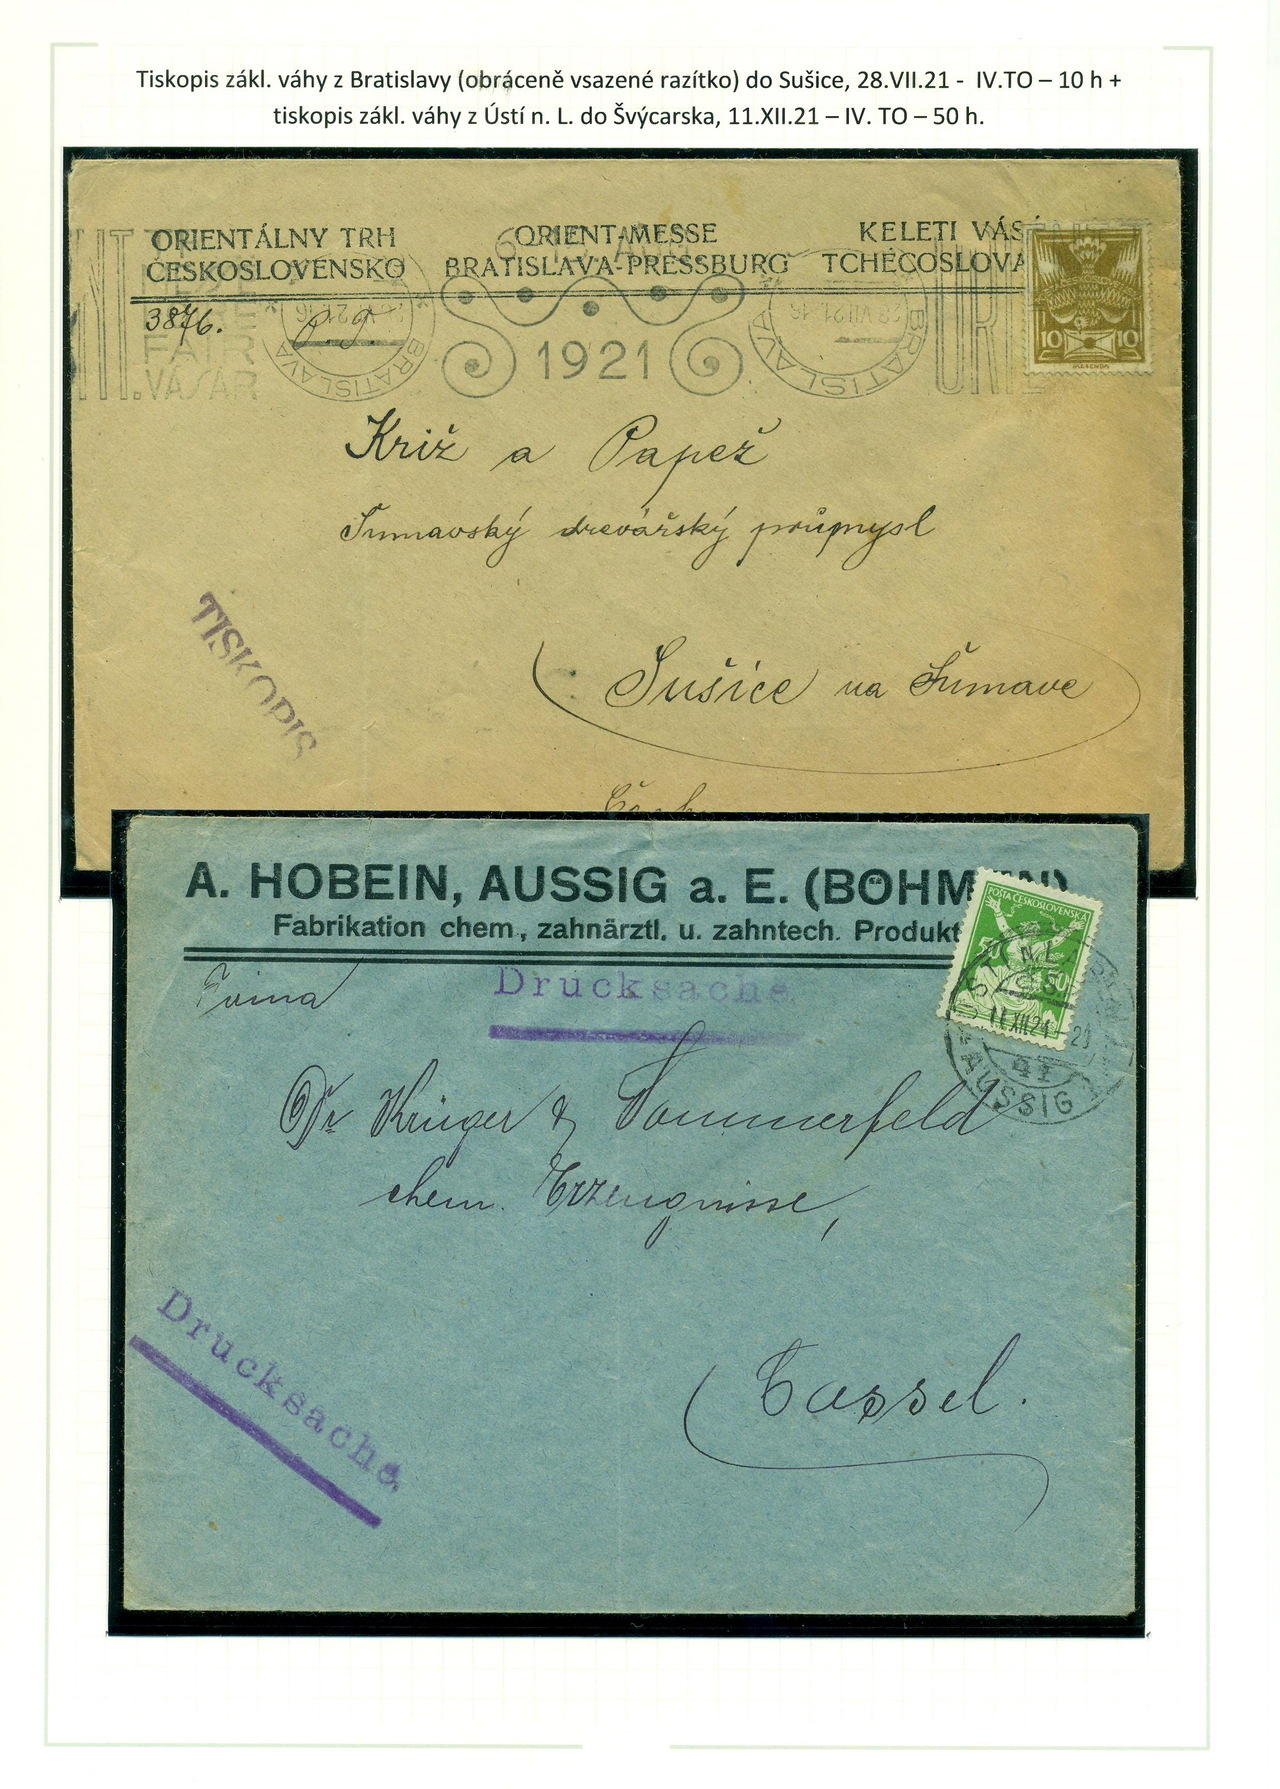 Tiskopis zákl. váhy z Bratislavy (obráceně vsazené razítko) do Sušice, 28.VII.21 - IV.TO – 10 h +
tiskopis zákl. váhy z Ústí n. L. do Švýcarska, 11.XII.21 – IV. TO – 50 h.
ORIENTÁLNY TRH
ČESKOSLOVENSKO
ORIENT-MESSE
BRATISLAVA-PRESSBURG
KELETI VÁS
TCHÉCOSLOVA
3876.
FAIR
VÁSAR
BRATISLAVA
1921
28 VII 21-16
BRATISLAVA
10 10
Križ a Papež
Šumavský drevářský průmysl
TISKOPIS
Sušice na Šumave
A. HOBEIN, AUSSIG a. E. (BÖHM
Fabrikation chem., zahnärztl. u. zahntech. Produkt
POŠTA ČESKOSLOVENSKÁ
50 50
11 XII 21
AUSSIG
Firma
Drucksache.
Dr Krüger & Sommerfeld
chem. Erzeugnisse,
Drucksache.
Cassel.